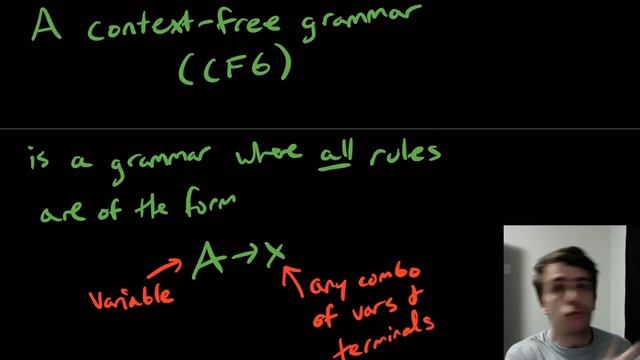 A context-free grammar
(CFG)
is a grammar where all rules
are of the form
A → x
variable
any combo
of vars &
terminals